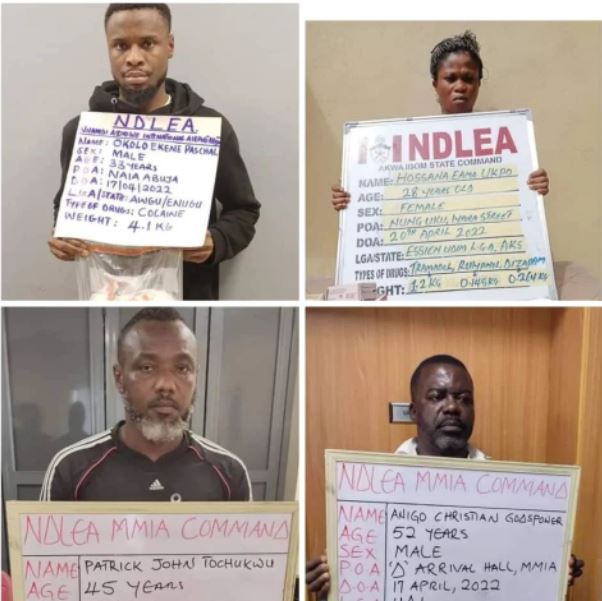 NDLEA
NNAMDI AZIKIWE INTERNATIONAL AIRPORT
NAME: OKOLO EKENE PASCHAL
SEX: MALE
AGE: 33 YEARS
P.O.A: NAIA ABUJA
D.O.A: 17/04/2022
L.G.A/STATE: AWGU/ENUGU
TYPE OF DRUGS: COCAINE
WEIGHT: 4.1 KG
NDLEA
AKWA IBOM STATE COMMAND
NAME: HOSSANA
AGE: 28 YEARS OLD
SEX: FEMALE
POA: NUNG UKU, STREET
DOA: 20TH APRIL 2022
LGA/STATE: ESSIEN UDIM L.G.A, AKS
TYPES OF DRUGS: TRAMADOL,
GHT: 1.2 KG 0.145KG
NDLEA MMIA COMMAND
NAME PATRICK JOHN TOCHUKWU
AGE 45 YEARS
NDLEA MMIA COMMAND
NAME ANIGO CHRISTIAN GODSPOWER
AGE 52 YEARS
SEX MALE
P.O.A 'D' ARRIVAL HALL, MMIA
D.O.A 17 APRIL, 2022